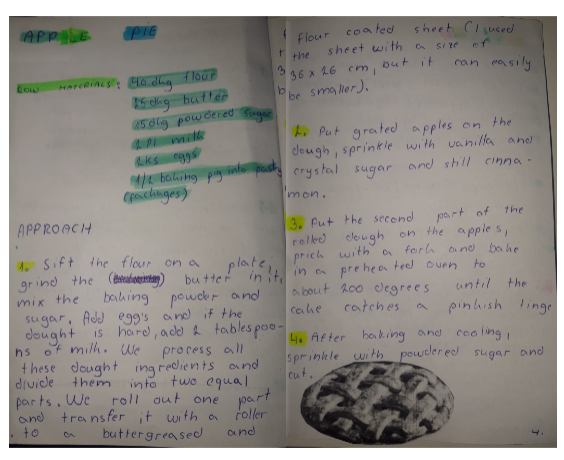 APPLE PIE
ROW MATERIALS: 40 dkg flour
25 dkg butter
15 dkg powdered sugar
2 Pl milk
2 ks eggs
1/2 baking pig into pasty
(packages)
APPROACH
1. Sift the flour on a plate,
grind the butter in it,
mix the baking powder and
sugar. Add egg's and if the
dought is hard, add 2 tablespoo-
ns of milk. We process all
these dought ingredients and
divide them into two equal
parts. We roll out one part
and transfer it with a roller
to a buttergreased and
flour coated sheet (I used
the sheet with a size of
36 x 26 cm, but it can easily
be smaller).
2. Put grated apples on the
dough, sprinkle with vanilla and
crystal sugar and still cinna-
mon.
3. Put the second part of the
rolled dough on the apples,
prick with a fork and bake
in a preheated oven to
about 200 degrees until the
cake catches a pinkish tinge
4. After baking and cooling,
sprinkle with powdered sugar and
cut.
4.